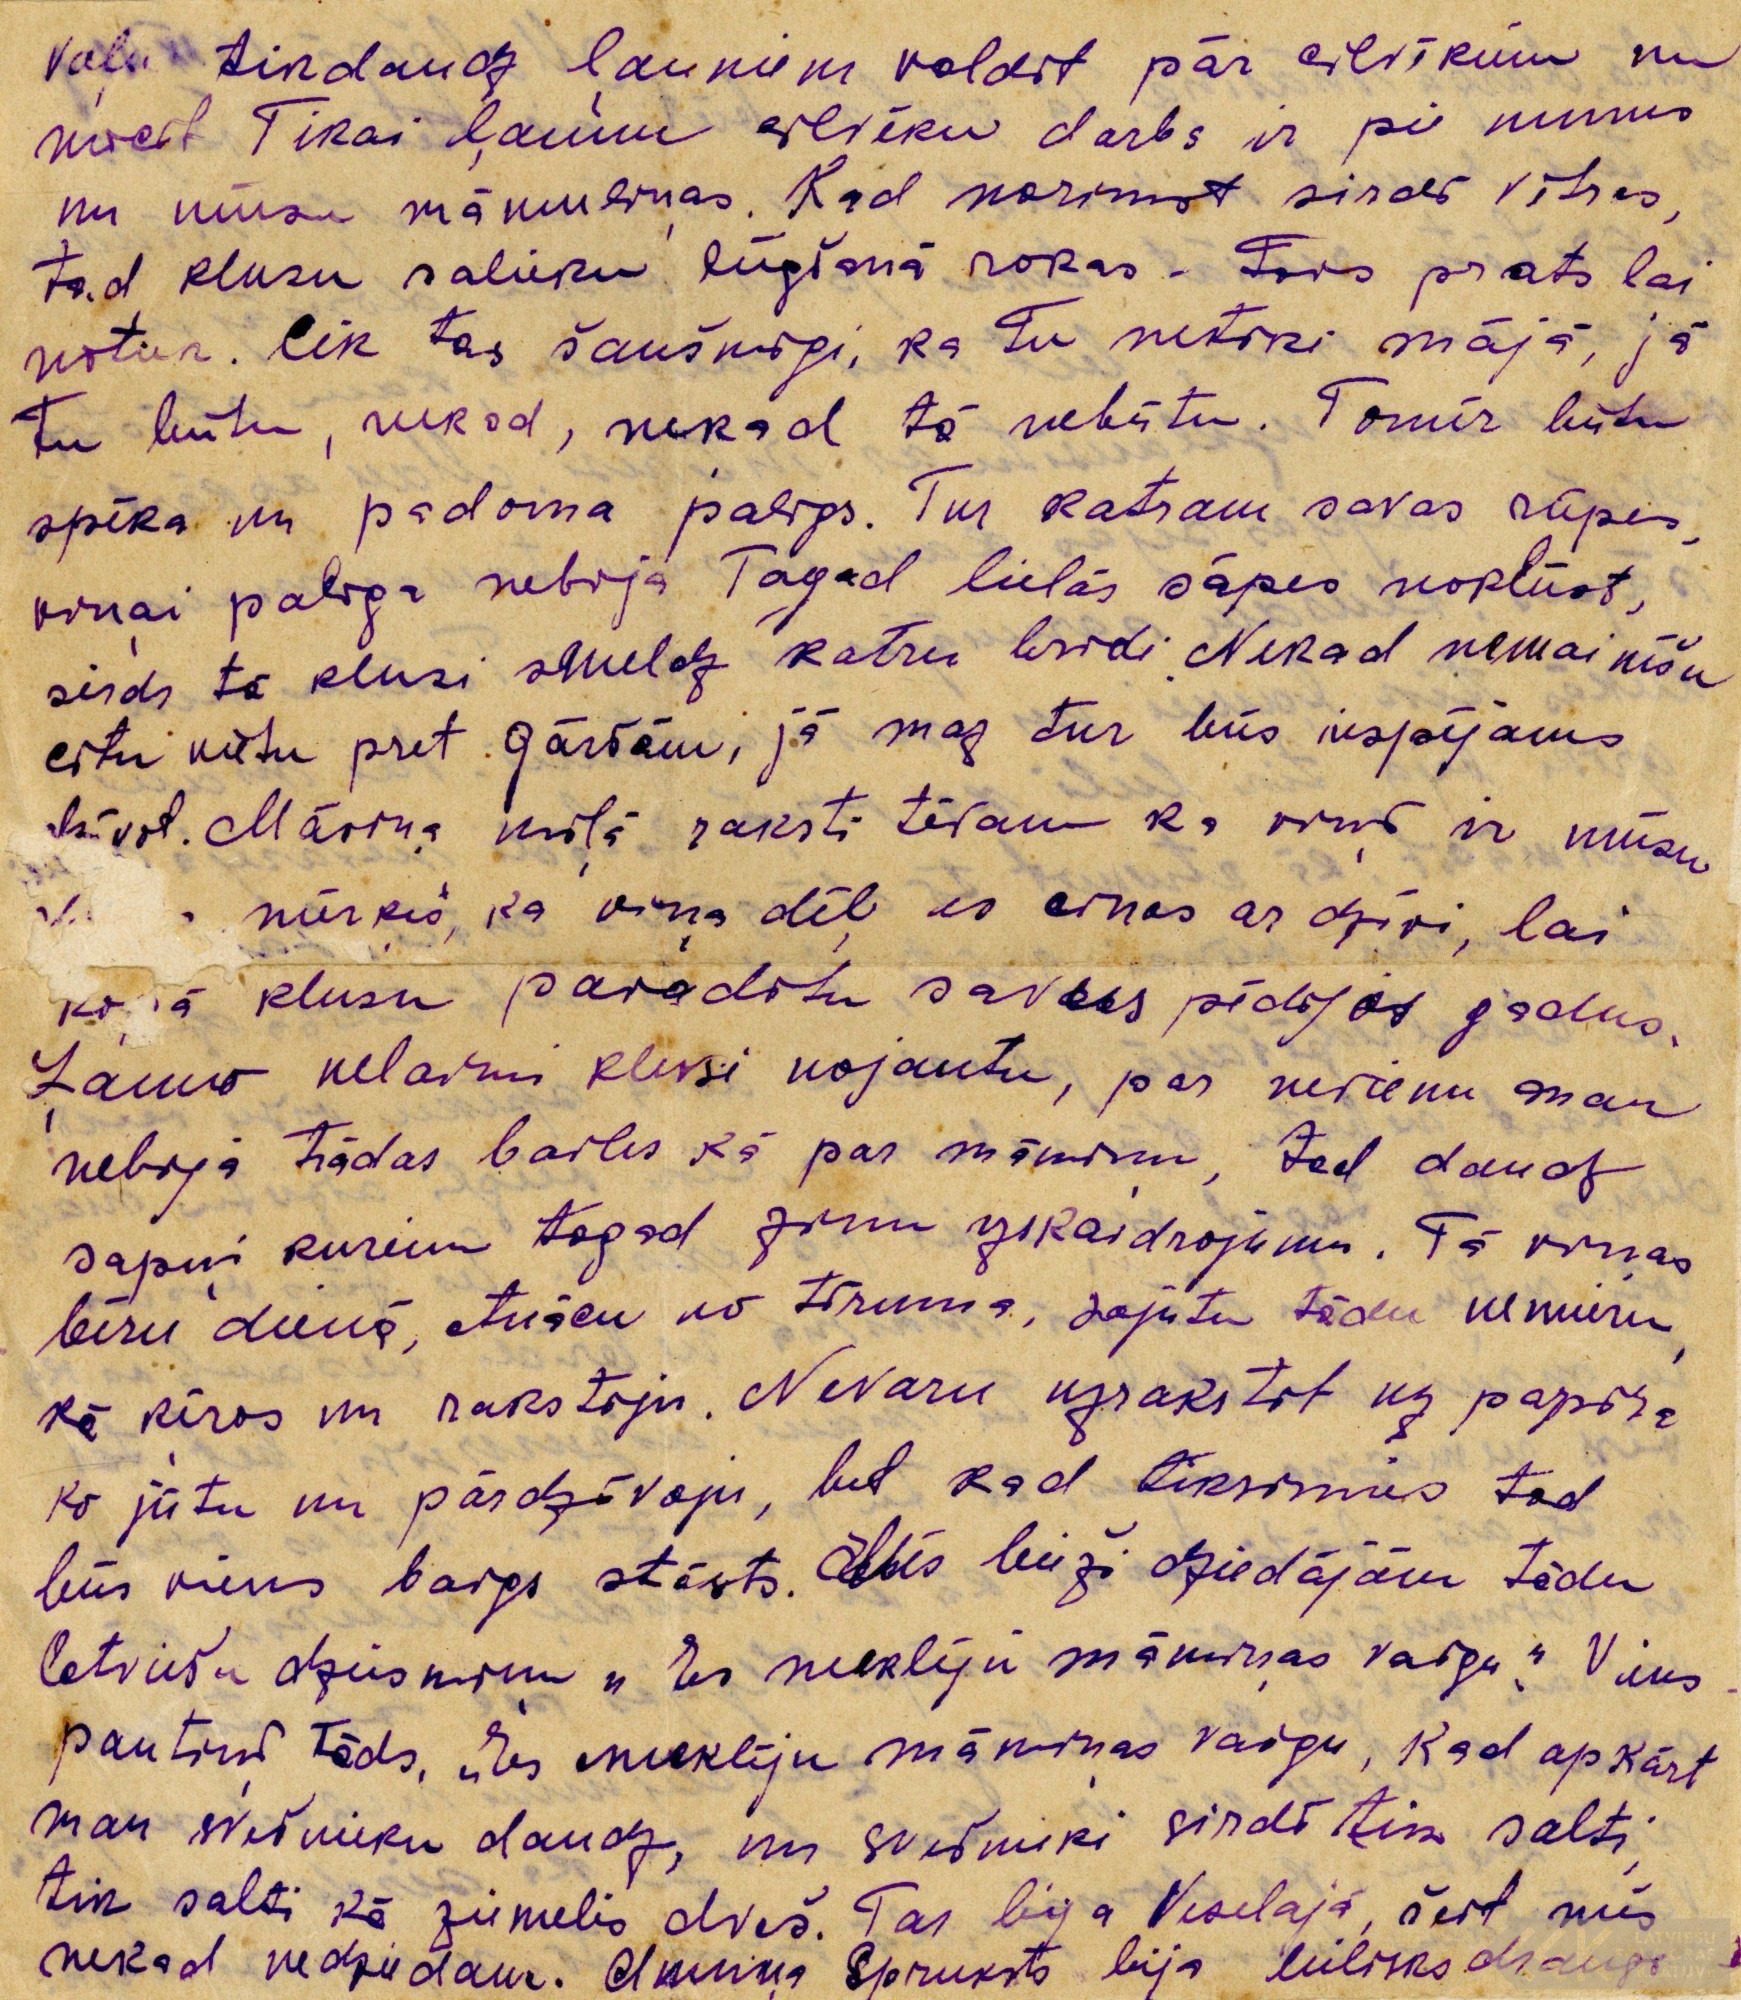 tikdaudz ļauniem valdīt pār cilvēkiem un
nīcit Tikai ļaunu cilvēku darbs ir pie mums
un mūsu māmuliņas. Kad norimst sirdī vētras,
tad klusu salieku lūgšanā rokas - Tavs prāts lai
notiek. Cik tas šausmīgi, ka Tu netiki mājā, jā
Tu būtu, nekad, nekad tā nebūtu. Tomēr būtu
spēka un padoma palīgs. Tur katram savas rūpes,
viņai palīga nebija Tagad lielās sāpes noklūst,
sirds tā klusi smeldz katru brīdi. Nekad nemainīšu
citu vietu pret Gāršām, jā maz tur būs iespējams
dzīvot. Māriņa mīļā raksti tēvam ka viņš ir mūsu
mērķis, ka viņa dēļ es cīnos ar dzīvi, lai
kopā klusu pavadītu savus pēdējos gadus.
Ļauno nelaimi klusi nojautu, par nevienu man
nebija tādas bailes kā par māmiņu, tad daudz
sapņi kuriem tagad zinu izskaidrojumu. Tā viņas
bēru dienā, atnācu no tīruma, sajutu tādu nemieru,
kā ķēros un rakstīju. Nevaru uzrakstīt uz papīra
ko jūtu un pārdzīvoju, bet kad tiksimies tad
būs viens baigs stāsts. Mēs bieži dziedājām tādu
latviešu dziesmiņu „Es meklēju māmiņas vaigu" Viens
pantiņš tāds, „Es meklēju māmiņas vaigu, kad apkārt
man svešnieku daudz, un svešnieki sirdī tik salti,
tik salti kā ziemelis dveš. Tas bija Veselajā, šeit mēs
nekad nedziedam. Spruksts bija lielisks draugs